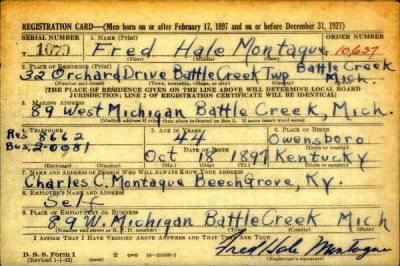 REGISTRATION CARD—(Men born on or after February 17, 1897 and on or before December 31, 1921)
SERIAL NUMBER 1. NAME (Print) ORDER NUMBER
T 1079 Fred Hale Montague 10,627
(First) (Middle) (Last)
2. PLACE OF RESIDENCE (Print)
32 Orchard Drive Battle Creek Twp Battle Creek Mich.
(Number and street) (Town, township, village, or city) (County) (State)
[THE PLACE OF RESIDENCE GIVEN ON THE LINE ABOVE WILL DETERMINE LOCAL BOARD
JURISDICTION; LINE 2 OF REGISTRATION CERTIFICATE WILL BE IDENTICAL]
3. MAILING ADDRESS
89 West Michigan Battle Creek, Mich.
[Mailing address if other than place indicated on line 2. If same insert word same]
4. TELEPHONE 5. AGE IN YEARS 6. PLACE OF BIRTH
Res 8662 44 Owensboro
DATE OF BIRTH (Town or county)
Bus. 2-0081 Oct 18 1897 Kentucky
(Mo.) (Day) (Yr.) (State or country)
7. NAME AND ADDRESS OF PERSON WHO WILL ALWAYS KNOW YOUR ADDRESS
Charles C. Montague Beech Grove, Ky.
8. EMPLOYER'S NAME AND ADDRESS
Self
9. PLACE OF EMPLOYMENT OR BUSINESS
89 W. Michigan Battle Creek Mich
(Number and street or R. F. D. number) (Town) (County) (State)
I AFFIRM THAT I HAVE VERIFIED ABOVE ANSWERS AND THAT THEY ARE TRUE.
D. S. S. Form 1
(Revised 1-1-42) (over) Fred Hale Montague
(Registrant's signature)